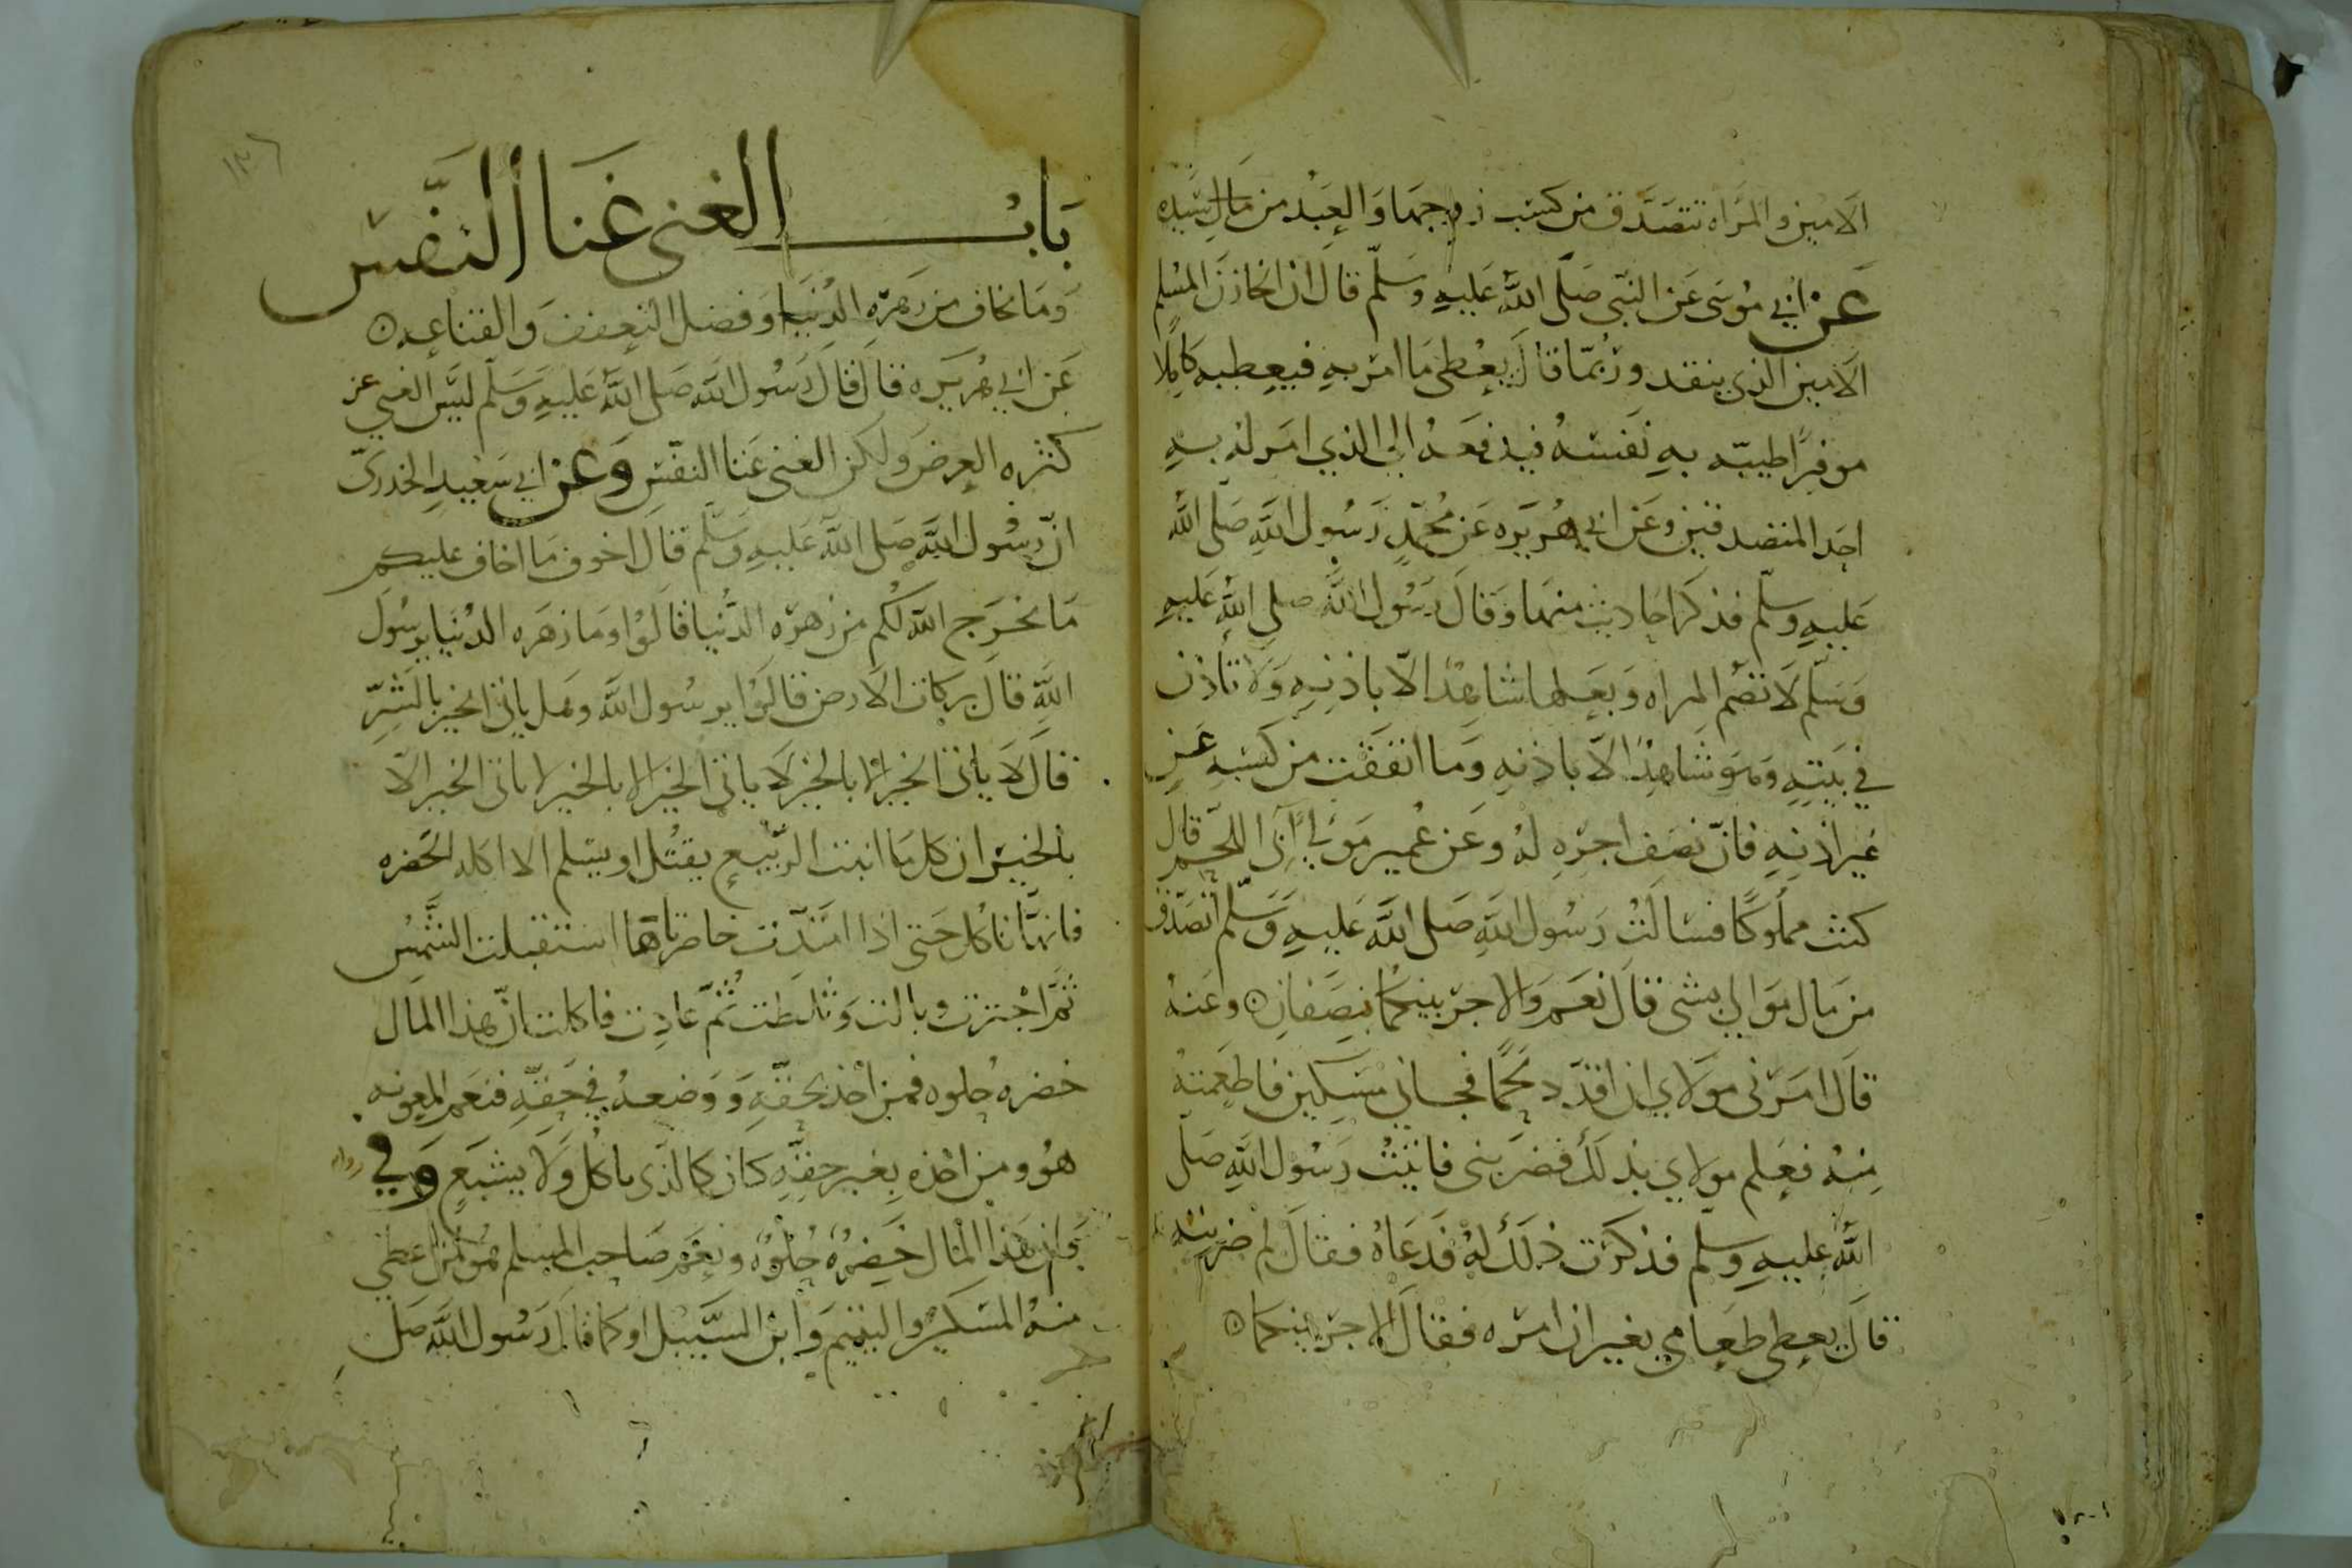 الامين والمراه تتصدق من كسب زوجها والعبد من مال سيده
عن ابي موسى عن النبي صلى الله عليه وسلم قال ان الخازن المسلم
الامين الذي ينفد وربما قال يعطى ما امر به فيعطيه كاملا
موفرا طيبه به نفسه فيدفعه الى الذي امر له به
احد المتصدقين وعن ابي هريره عن محمد رسول الله صلى الله
عليه وسلم فذكر احاديث منها وقال رسول الله صلى الله عليه
وسلم لا تصم المراه وبعلها شاهد الا باذنه ولا تاذن
في بيته وهو شاهد الا باذنه وما انفقت من كسبه عن
غير اذنه فان نصف اجره له وعن عمير مولى آبي اللحم قال
كنت مملوكا فسالت رسول الله صلى الله عليه وسلم اتصدق
من مال موالي بشى قال نعم والاجر بينكما نصفان وعنه
قال امرني مولاي ان اقدد لحما فجاني مسكين فاطعمته
منه فعلم مولاي بذلك فضربني فاتيت رسول الله صلى
الله عليه وسلم فذكرت ذلك له فدعاه فقال لم ضربته
قال يعطي طعامي بغير ان امره فقال الاجر بينكما
باب الغنى غنا النفس
وما يخاف من زهره الدنيا وفضل التعفف والقناعه
عن ابي هريره قال قال رسول الله صلى الله عليه وسلم ليس الغنى عن
كثره العرض ولكن الغنى غنا النفس وعن ابي سعيد الخدري
ان رسول الله صلى الله عليه وسلم قال اخوف ما اخاف عليكم
ما يخرج الله لكم من زهره الدنيا قالوا وما زهره الدنيا يرسول
الله قال بركات الارض قالوا يرسول الله وهل ياتي الخير بالشر
قال لا ياتي الخير الا بالخير لا ياتي الخير الا بالخير لا ياتي الخير الا
بالخير ان كل ما انبت الربيع يقتل او يسلم الا اكله الخضره
فانها تاكل حتى اذا امتدت خاصرتاها استقبلت الشمس
ثم اجترت وبالت وثلطت ثم عادت فاكلت ان هذا المال
خضره حلوه فمن اخذ بحقه ووضعه في حقه فنعم المعونه
هو ومن اخذه بغير حقه كان كالذي ياكل ولا يشبع وفي روايه
وان هذا المال خضره حلوه ونعم صاحب المسلم هو لمن اعطى
منه المسكين واليتيم وابن السبيل او كما قال رسول الله صلى